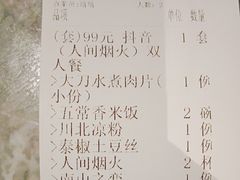 品项 单位 数量
(套)99元 抖音 1 套
(人间烟火) 双
人餐
>大刀水煮肉片( 1 份
小份)
>五常香米饭 2 碗
>川北凉粉 1 份
>秦椒土豆丝 1 份
>人间烟火 2 杯